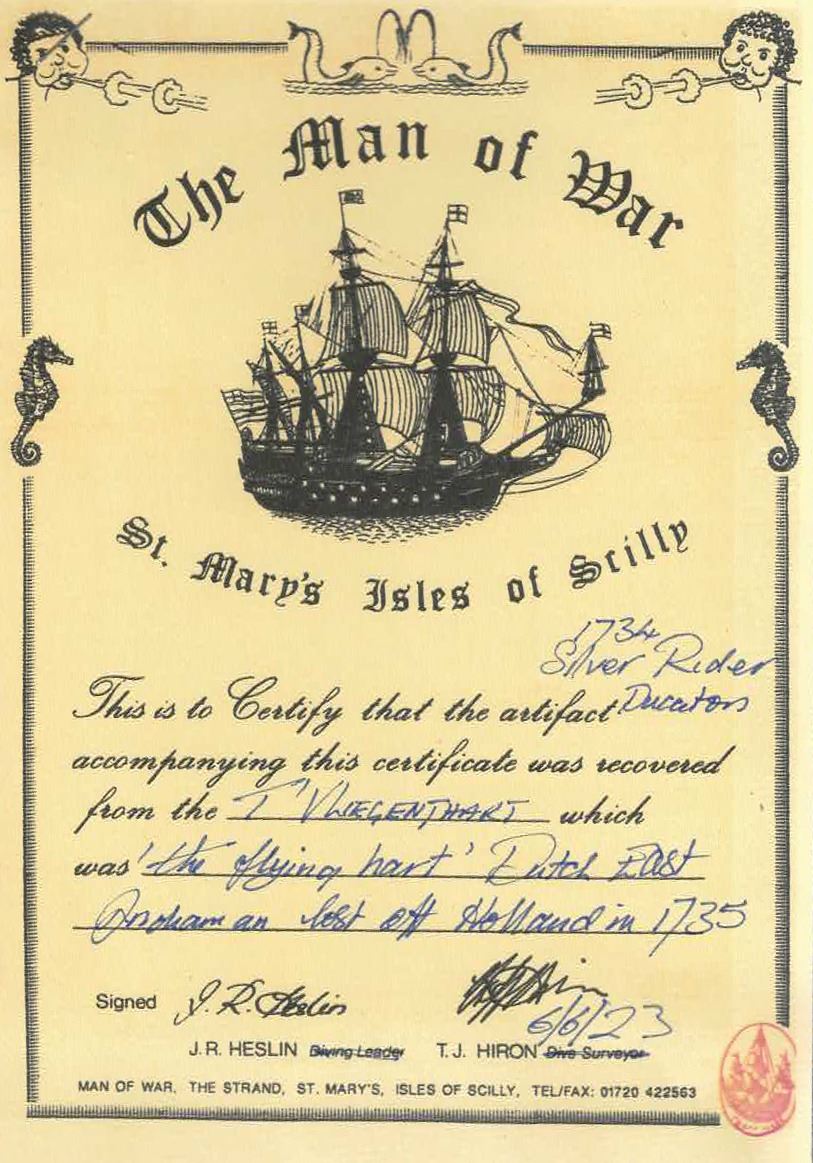 The Man of War
St. Mary's Isles of Scilly
1734
Silver Rider
Ducatons
This is to Certify that the artifact
accompanying this certificate was recovered
from the T'VLIEGENTHART which
was 'the flying hart' Dutch East
Indiaman lost off Holland in 1735
Signed J. R. Heslin
6/6/23
J.R. HESLIN Diving Leader T.J. HIRON Dive Surveyor
MAN OF WAR, THE STRAND, ST. MARY'S, ISLES OF SCILLY, TEL/FAX: 01720 422563